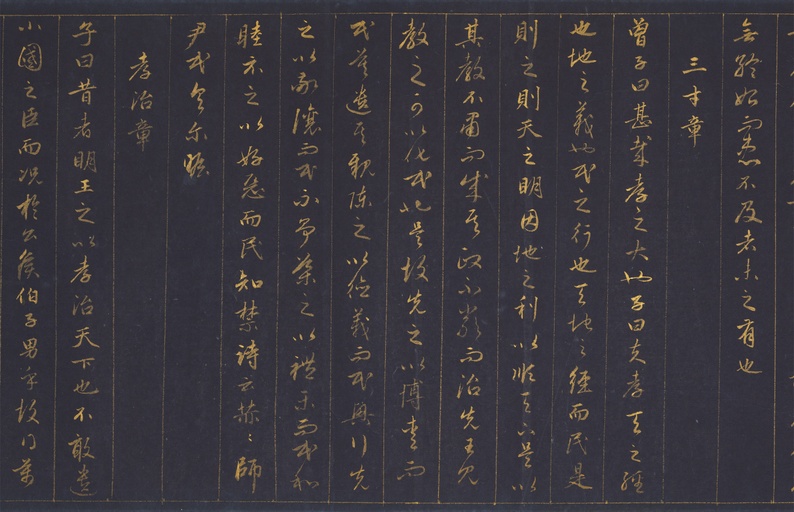 無終始而患不及者未之有也
三才章
曾子曰甚哉孝之大也子曰夫孝天之經
也地之義也民之行也天地之經而民是
則之則天之明因地之利以順天下是以
其教不肅而成其政不嚴而治先王見
教之可以化民也是故先之以博愛而
民莫遺其親陳之以德義而民興行先
之以敬讓而民不爭導之以禮樂而民和
睦示之以好惡而民知禁詩云赫〻師
尹民具爾瞻
孝治章
子曰昔者明王之以孝治天下也不敢遺
小國之臣而況於公侯伯子男乎故得萬